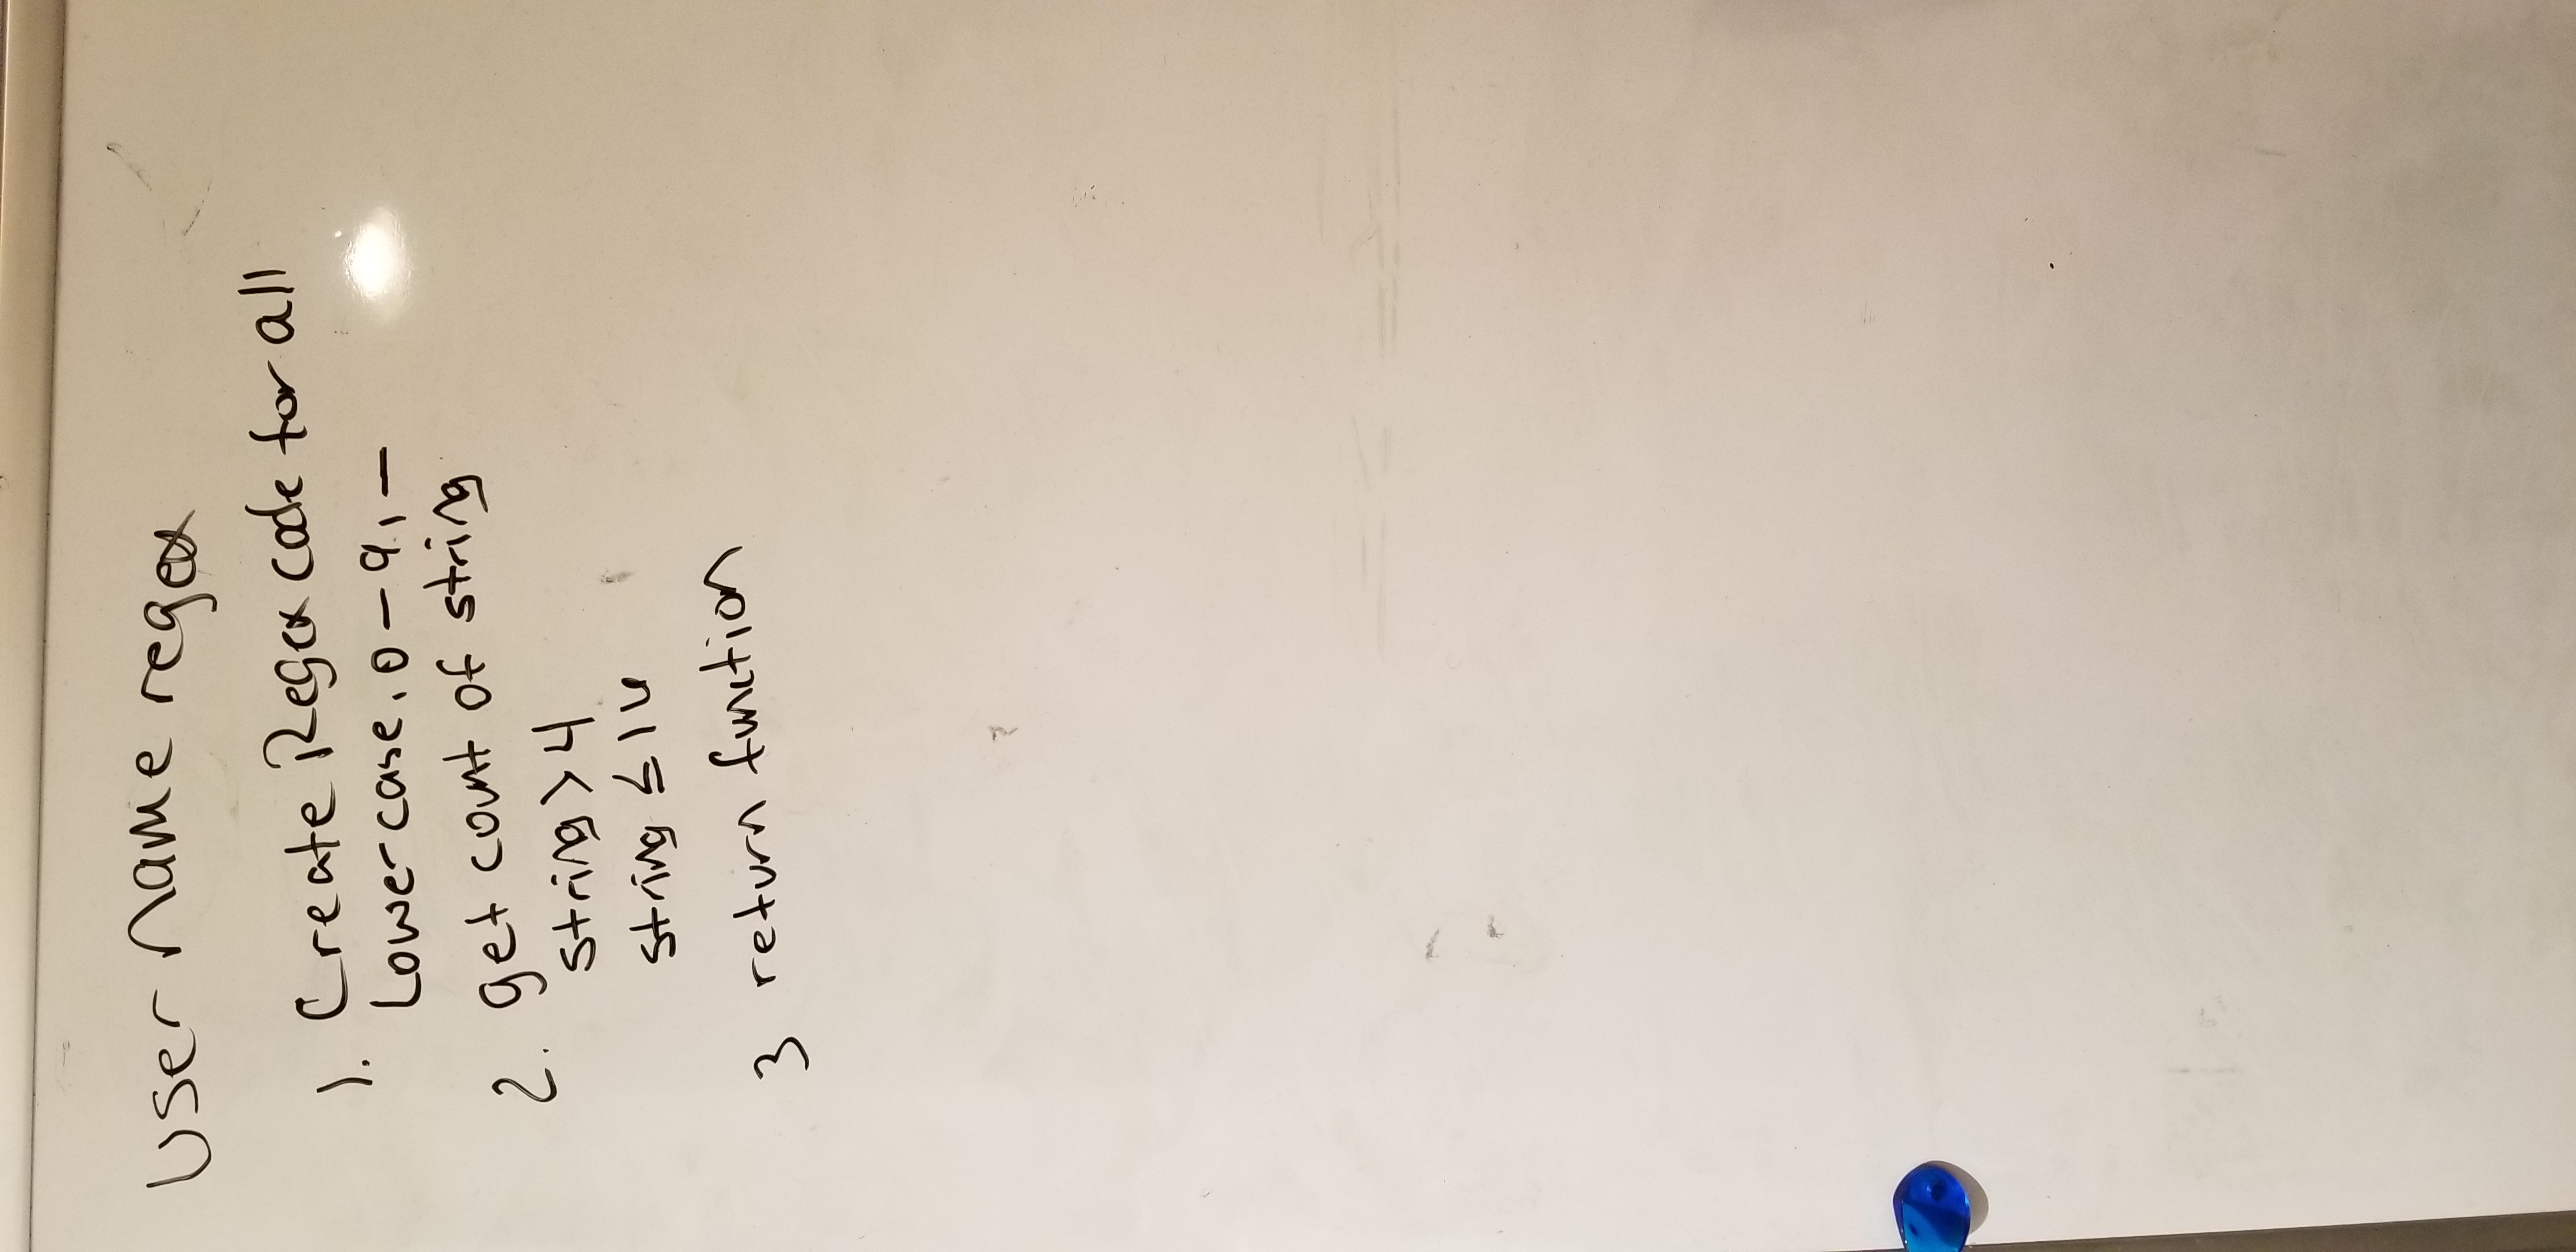 User name regex
1. Create Regex code for all
Lowercase, 0-9, -
2. get count of string
string > 4
string ≤ 16
3 return function